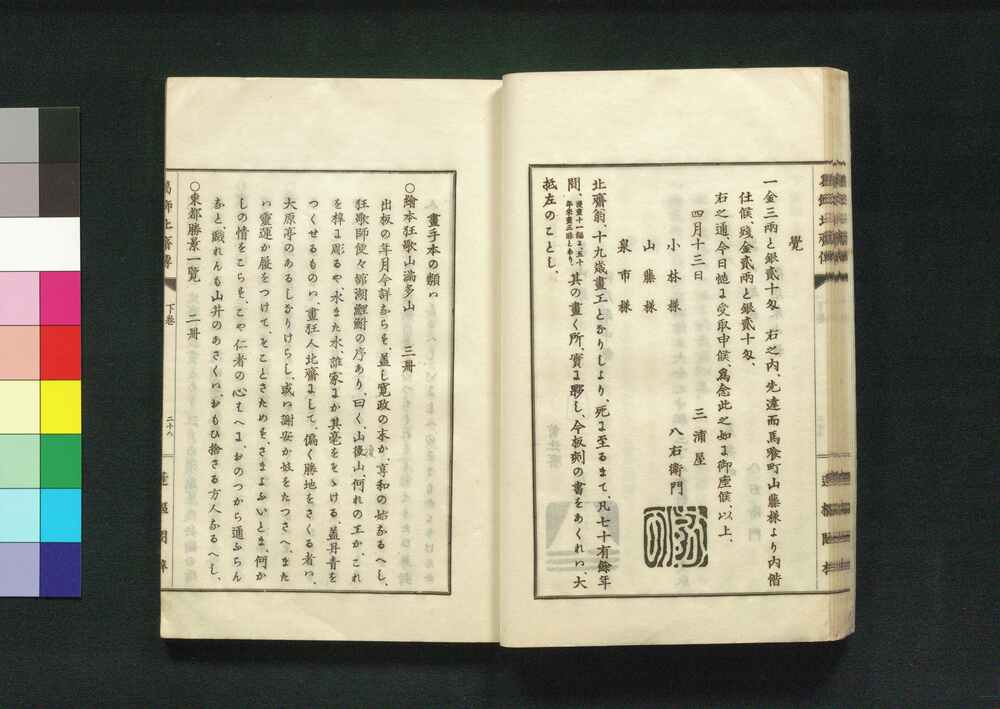 覺
一金三兩と銀貳十匁 右之内、先達而馬喰町山藤様より内借
仕候、殘金貳兩と銀貳十匁、
右之通今日慥ニ受取申候、爲念此之如ニ御座候、以上、
四月十三日
三浦屋
八右衛門
小林様
山藤様
泉市様
北齋翁、十九歳畫工となりしより、死に至るまて、凡七十有餘年
間、
其の畫く所、實に夥し、今板刻の書をあくれハ、大
抵左のことし、
畫手本の類ハ
○繪本狂歌山滿多山 三冊
出版の年月今詳ならす、蓋し寛政の末か、享和の始なるへし、
狂歌師
の序あり、曰く、山復山何れの工か、これ
を梓に彫るや、水また水、誰家にか其毫をそゝける、蓋丹青を
つくせるものハ、畫狂人北齋にして、偏く勝地をさくる者ハ、
大原亭のあるしなりけらし、或ハ謝安か妓をたつさへ、また
ハ靈運か屐をつけて、そことさためす、さまよふいとま、何か
しの情をこらす、こや仁者の心もへに、おのつから通ふらん
なと、戯れんも山井のあさくハ、おもひ捨さる方人なるへし、
○東都勝景一覽 二冊
葛飾北齋傳
下卷
二十八
蓬樞閣梓